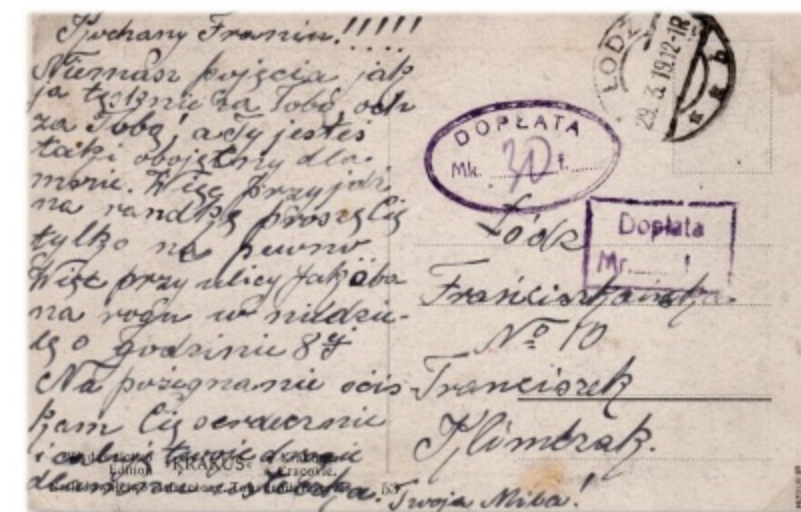 Kochany Franiu!!!!!
Niemasz pojęcia jak
ja tęsknie za Tobą och
za Tobą! a Ty jesteś
taki obojętny dla
mnie. Więc przyjdź
na randkę proszę Cię
tylko na pewno
Więc przy ulicy Jakóba
na rogu w niedzie-
lę o godzinie 8ej
Na pożegnanie ocis-
kam Cię serdecznie
i
Edition "KRAKUS" Cracovie.
Twoja Miła!
ŁODZ
29.3.19.12-1R
* * b
DOPŁATA
Mk. 30 f.
Dopłata
Mr.
Łódz
Franciszkańska
№ 10
Franciszek
Klimczak.